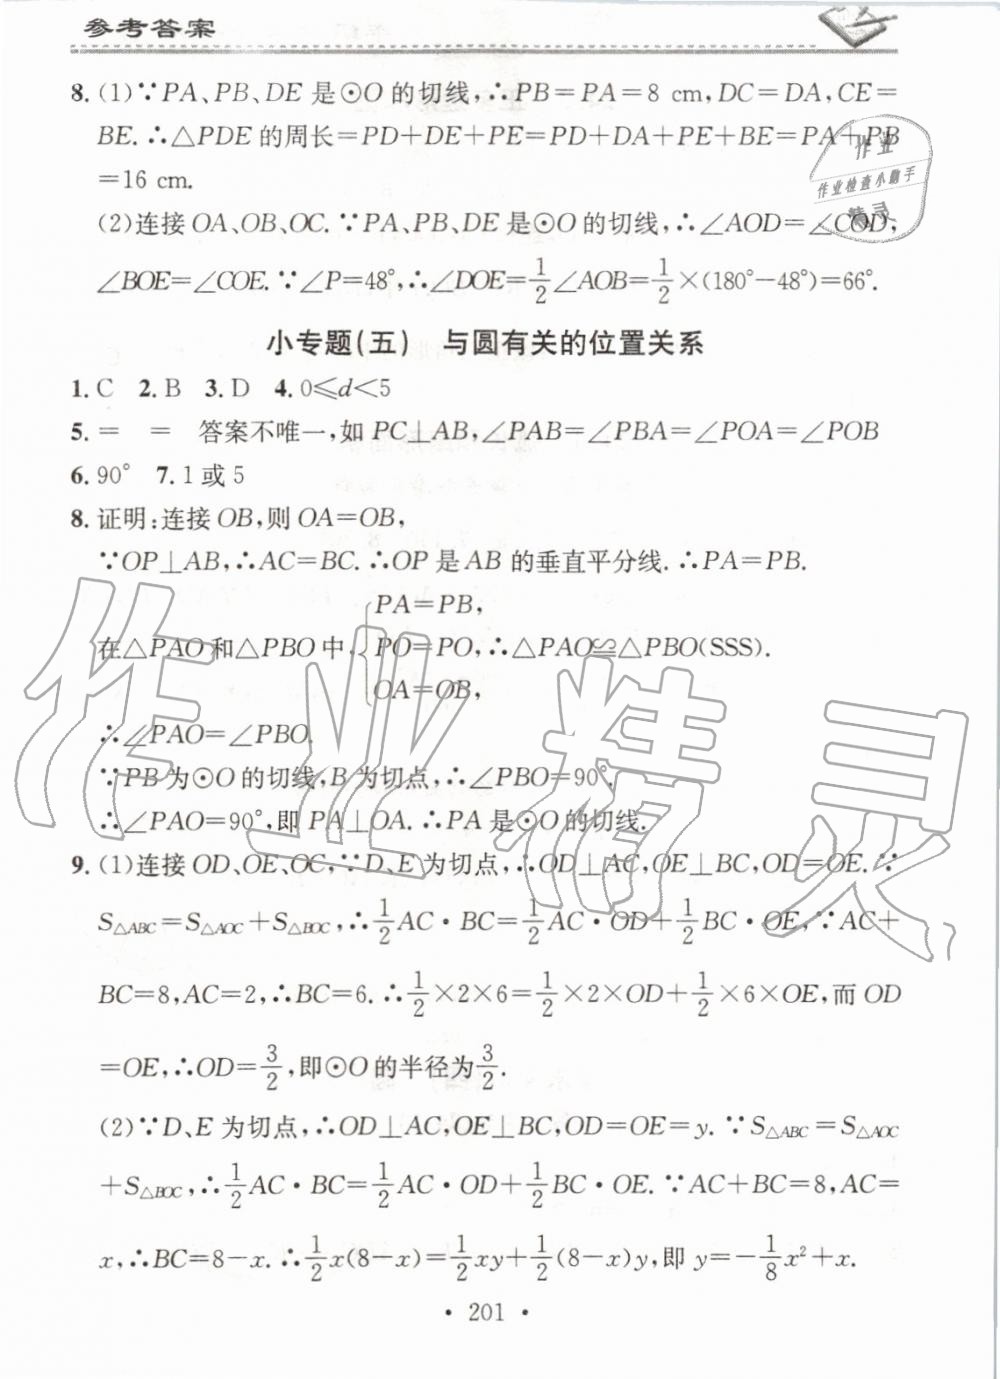 参考答案
8. (1)∵PA、PB、DE 是⊙O 的切线,∴PB=PA=8 cm,DC=DA,CE=
BE. ∴△PDE 的周长=PD+DE+PE=PD+DA+PE+BE=PA+PB
=16 cm.
(2)连接 OA、OB、OC. ∵PA、PB、DE 是⊙O 的切线,∴∠AOD=∠COD,
∠BOE=∠COE. ∵∠P=48°,∴∠DOE=1/2∠AOB=1/2×(180°-48°)=66°.
作业
作业检查小助手
精灵
小专题(五) 与圆有关的位置关系
1. C 2. B 3. D 4. 0≤d<5
5. = = 答案不唯一,如 PC⊥AB,∠PAB=∠PBA=∠POA=∠POB
6. 90° 7. 1 或 5
8. 证明:连接 OB,则 OA=OB,
∵OP⊥AB,∴AC=BC. ∴OP 是 AB 的垂直平分线. ∴PA=PB.
PA=PB,
在△PAO 和△PBO 中,{PO=PO,∴△PAO≌△PBO(SSS).
OA=OB,
∴∠PAO=∠PBO.
∵PB 为⊙O 的切线,B 为切点,∴∠PBO=90°.
∴∠PAO=90°,即 PA⊥OA. ∴PA 是⊙O 的切线.
作业精灵
9. (1)连接 OD、OE、OC,∵D、E 为切点,∴OD⊥AC,OE⊥BC,OD=OE. ∵
S△ABC=S△AOC+S△BOC,∴1/2AC·BC=1/2AC·OD+1/2BC·OE,∵AC+
BC=8,AC=2,∴BC=6. ∴1/2×2×6=1/2×2×OD+1/2×6×OE,而 OD
=OE,∴OD=3/2,即⊙O 的半径为3/2.
(2)∵D、E 为切点,∴OD⊥AC,OE⊥BC,OD=OE=y. ∵S△ABC=S△AOC
+S△BOC,∴1/2AC·BC=1/2AC·OD+1/2BC·OE. ∵AC+BC=8,AC=
x,∴BC=8-x. ∴1/2x(8-x)=1/2xy+1/2(8-x)y,即 y=-1/8x²+x.
· 201 ·